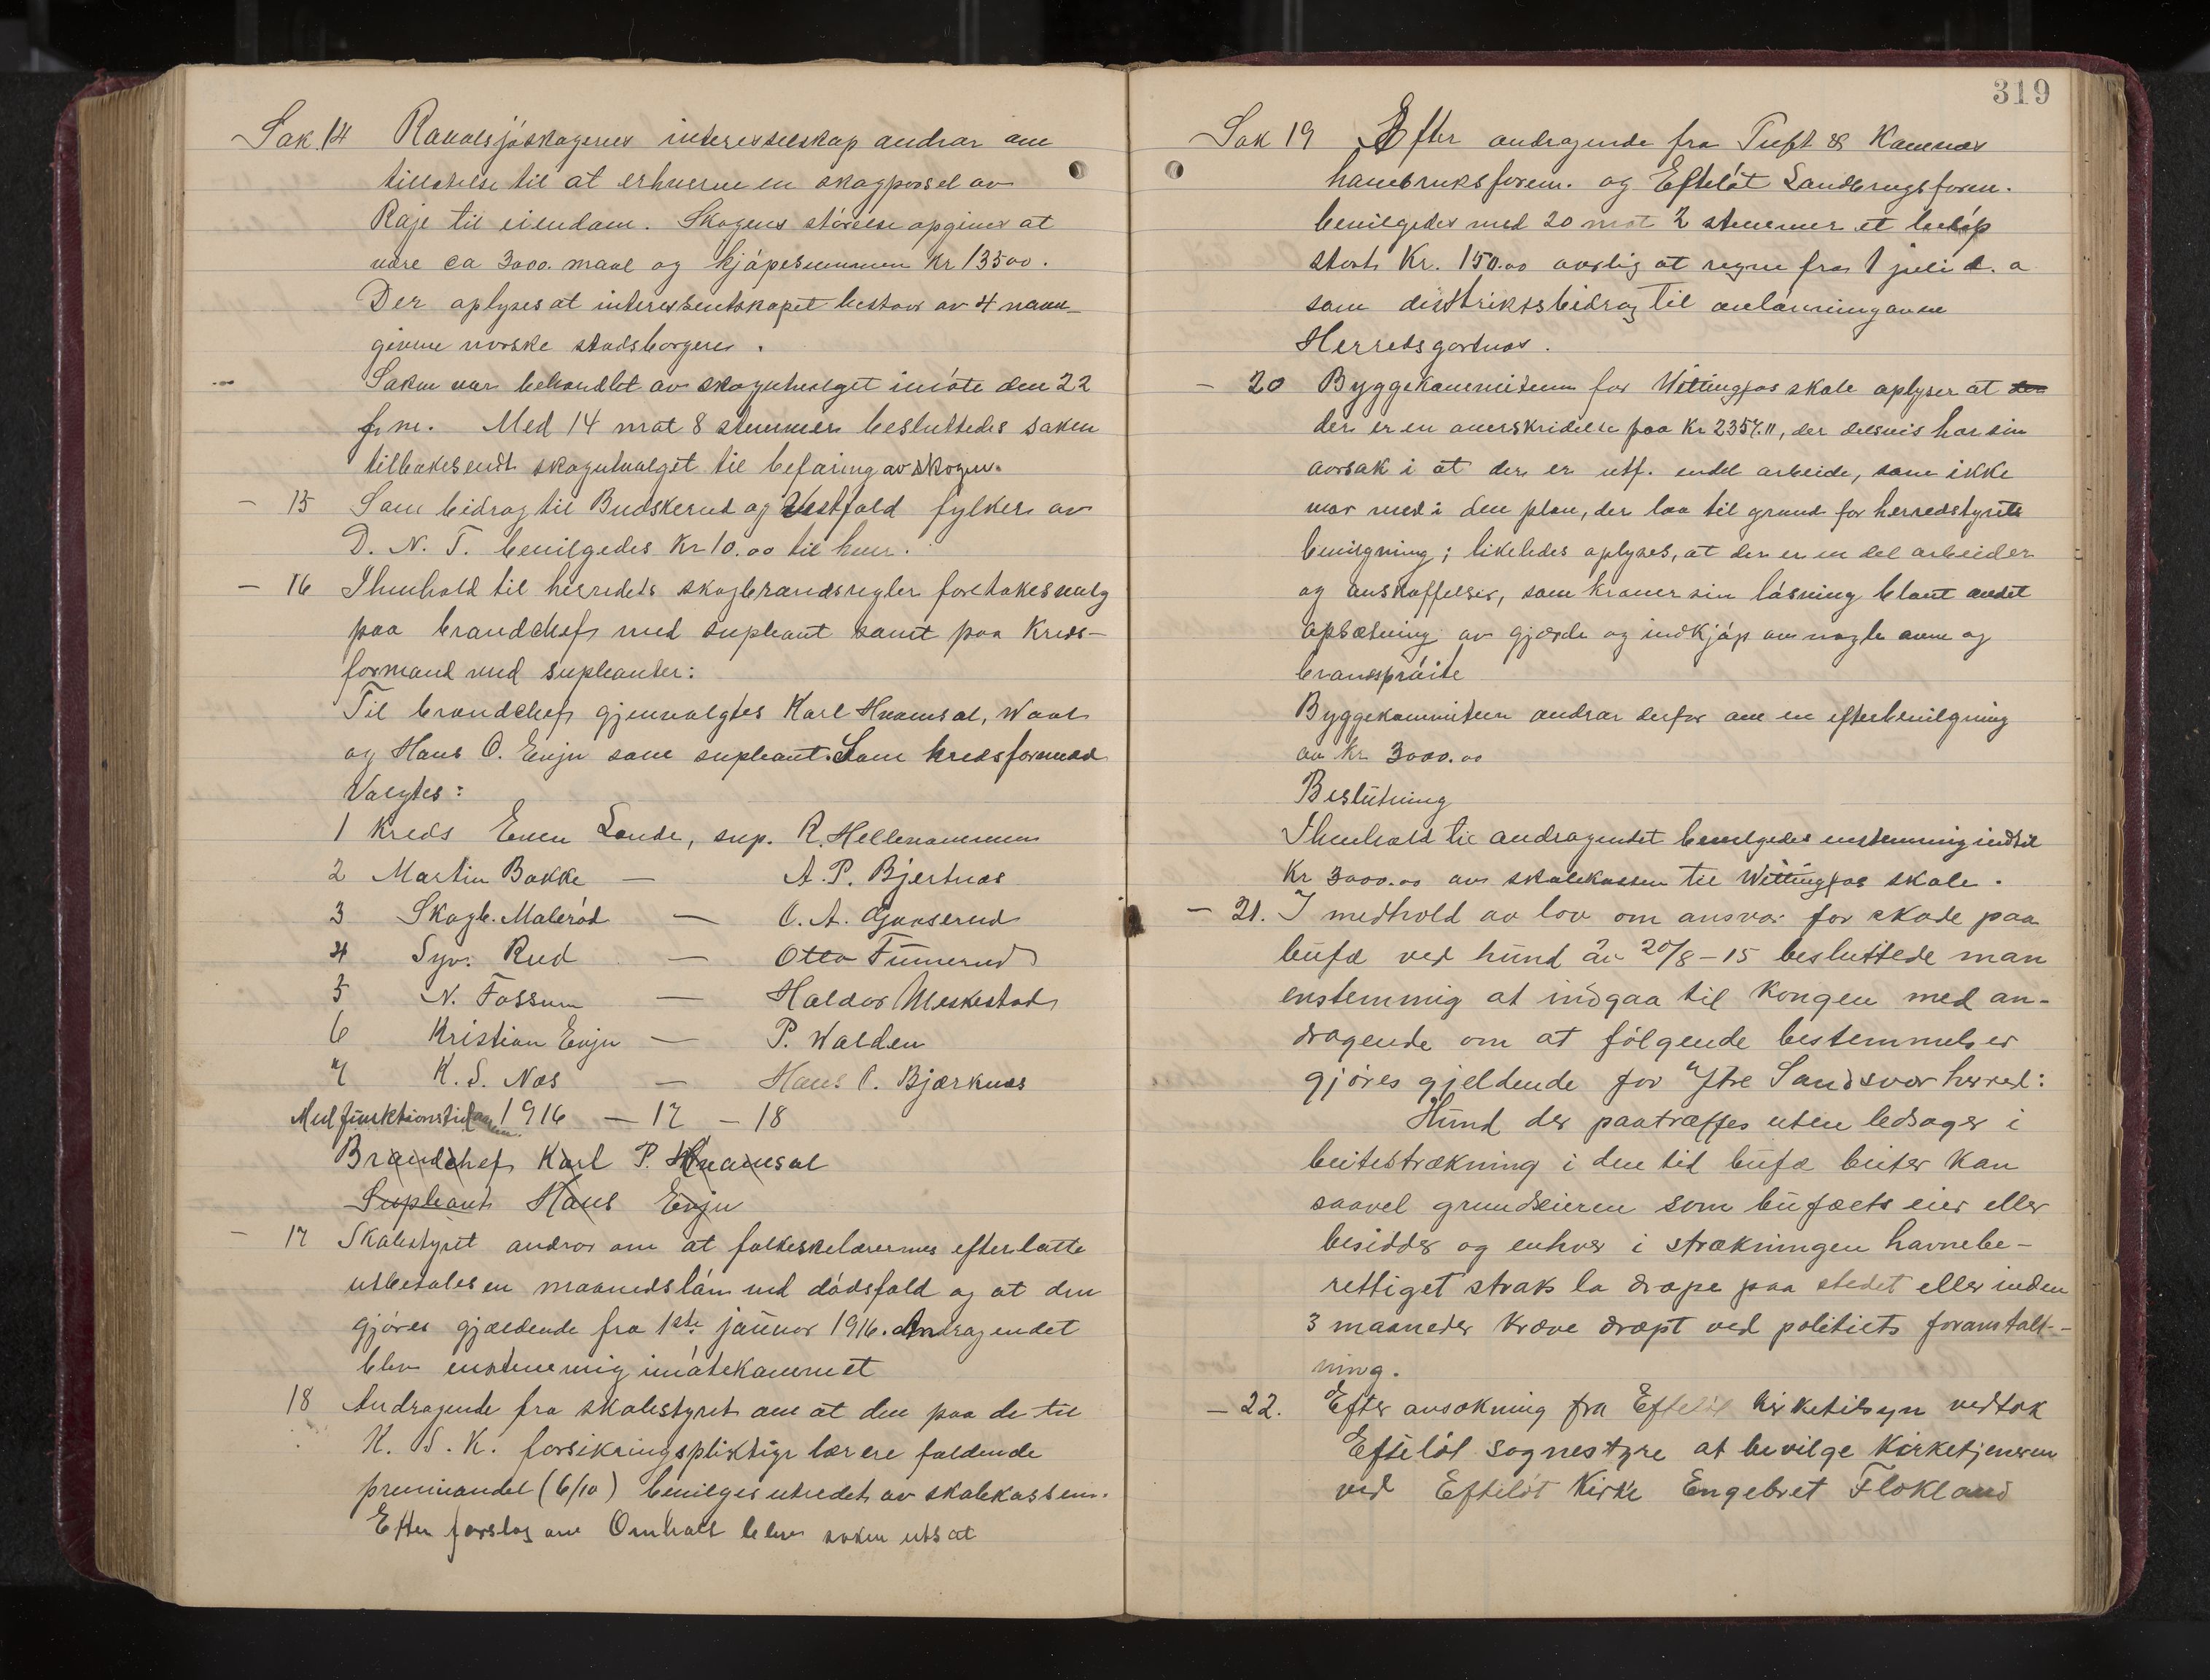 Sak 14 Ravalsjøskogenes interesselskap andrar om
tillatelse til at erhverve en skogparsel av
Raje til eiendom. Skogens størelse opgives at
være ca 3000 maal og kjøpesummen Kr 13500.
Der oplyses at interessentskapet bestaar av 4 navn-
givne norske stadsborgere.
Saken var behandlet av skogutvalget i møte den 22
f.m. Med 14 mot 8 stemmer besluttedes saken
tilbakesendt skogutvalget til befaring av skogen.
– 15 Som bidrag til Buskerud og Vestfold fylker av
D. N. T. bevilgedes Kr 10.00 til hver.
– 16 I henhold til herredets skogbrandsregler foretokes valg
paa brandchef med supleant samt paa Kreds-
formænd med supleanter:
Til brandchef gjenvalgtes Karl Hvamsal,
og Hans O. Evju som supleant. Som kredsformænd
Valgtes:
1 Kreds Even Lande, sup. R. Hellenammen
2 Martin Bakke — A. P. Bjertnæs
3 Skogb. Malerød — O. A. Gunserud
4 Syv. Rud — Otto Funnerud
5 N. Fossum — Haldor Meskestad
6 Kristian Evju — P. Walden
7 K. S. Næs — Hans C. Bjærknæs
Med funktionstid 1916 – 17 – 18
Brandchef Karl P. Hvamsal
Supleant Hans Evju
– 17 Skolestyret andrar om at folkeskolelærernes efterlatte
utbetales en maanedsløn ved dødsfald og at den
gjøres gjældende fra 1ste januar 1916. Andragendet
blev enstemmig imøtekommet
18 Andragende fra skolestyret om at den paa de til
K. S. K. forsikringspliktige lærere faldende
premieandel (6/10) bevilges utredet av skolekassen.
Efter forslag av Omholt blev saken utsat
319
Sak 19 Efter andragende fra Tuft & Kamnæs
havebruksforen. og Efteløt Landbrugsforen.
bevilgedes med 20 mot 2 stemmer et beløp
stort Kr. 150.00 aarlig at regne fra 1 juli d. a
som distriktsbidrag til avlønning av en
Herredsgartner.
– 20 Byggekommiteen for Wittingfos skole oplyser at den
der er en overskridelse paa Kr 2357.11, der delsvis har sin
aarsak i at der er utf. endel arbeide, som ikke
var med i den plan, der laa til grund for herredstyrets
bevilgning; likeledes oplyses, at der er en del arbeider
og anskaffelser, som kræver sin løsning blant andet
opsætning av gjærde og indkjøp av nogle ovne og
brandsprøite
Byggekommiteen andrar derfor om en efterbevilgning
av Kr 3000.00
Beslutning
I henhold til andragendet bevilgedes enstemmig indtil
Kr 3000.00 av skolekassen til Wittingfos skole.
– 21. I medhold av lov om ansvar for skade paa
bufæ ved hund av 20/8 – 15 besluttede man
enstemmig at indgaa til Kongen med an-
dragende om at følgende bestemmelser
gjøres gjeldende for Ytre Sandsvær herred:
Hund der paatræffes uten ledsager i
beitestrækning i den tid bufæ beiter kan
saavel grundeieren som bufæets eier eller
besidder og enhver i strækningen havnebe-
rettiget straks la dræpe paa stedet eller inden
3 maaneder kræve dræpt ved politiets foranstalt-
ning.
– 22. Efter ansøkning fra Efteløt kirketilsyn vedtok
Efteløt sognestyre at bevilge Kirketjeneren
ved Efteløt Kirke Engebret Flokland